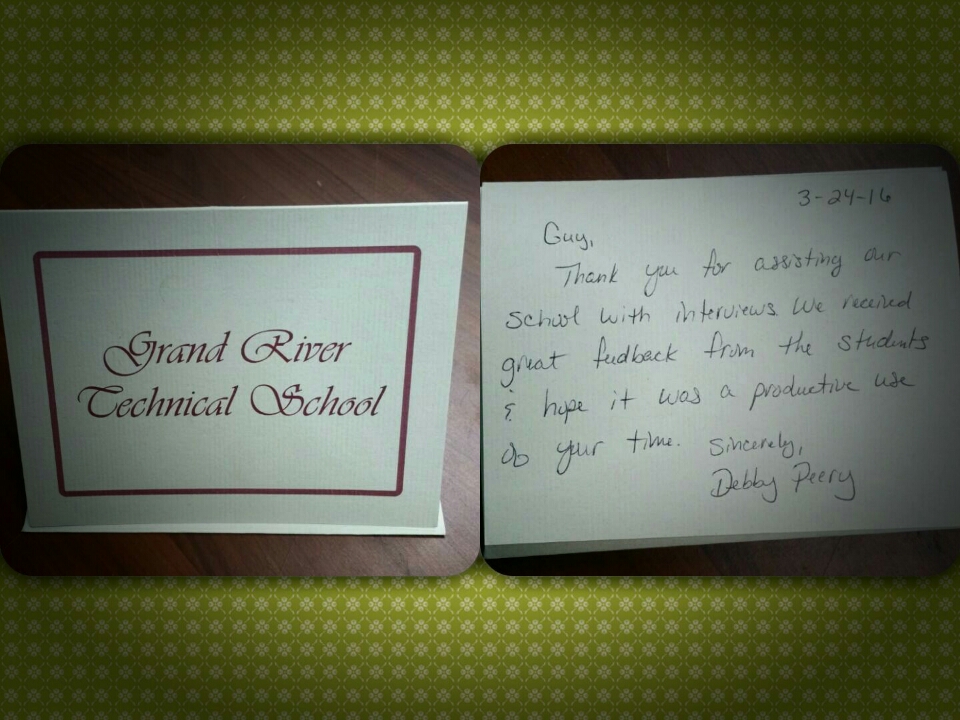 Grand River
Technical School
3-24-16
Guy,
Thank you for assisting our
school with interviews. We received
great feedback from the students
& hope it was a productive use
of your time. Sincerely,
Debby Peery